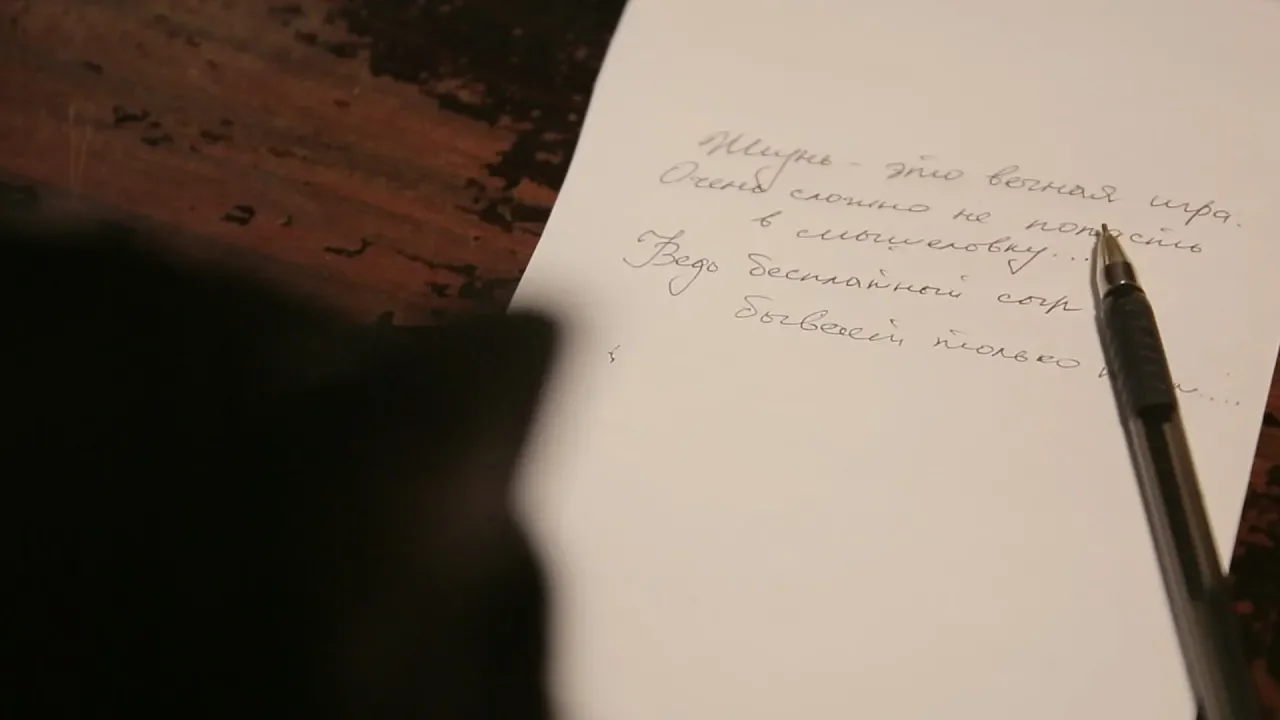 Жизнь - это вечная игра.
Очень сложно не попасть
в мышеловку...
Ведь бесплатный сыр
бывает только